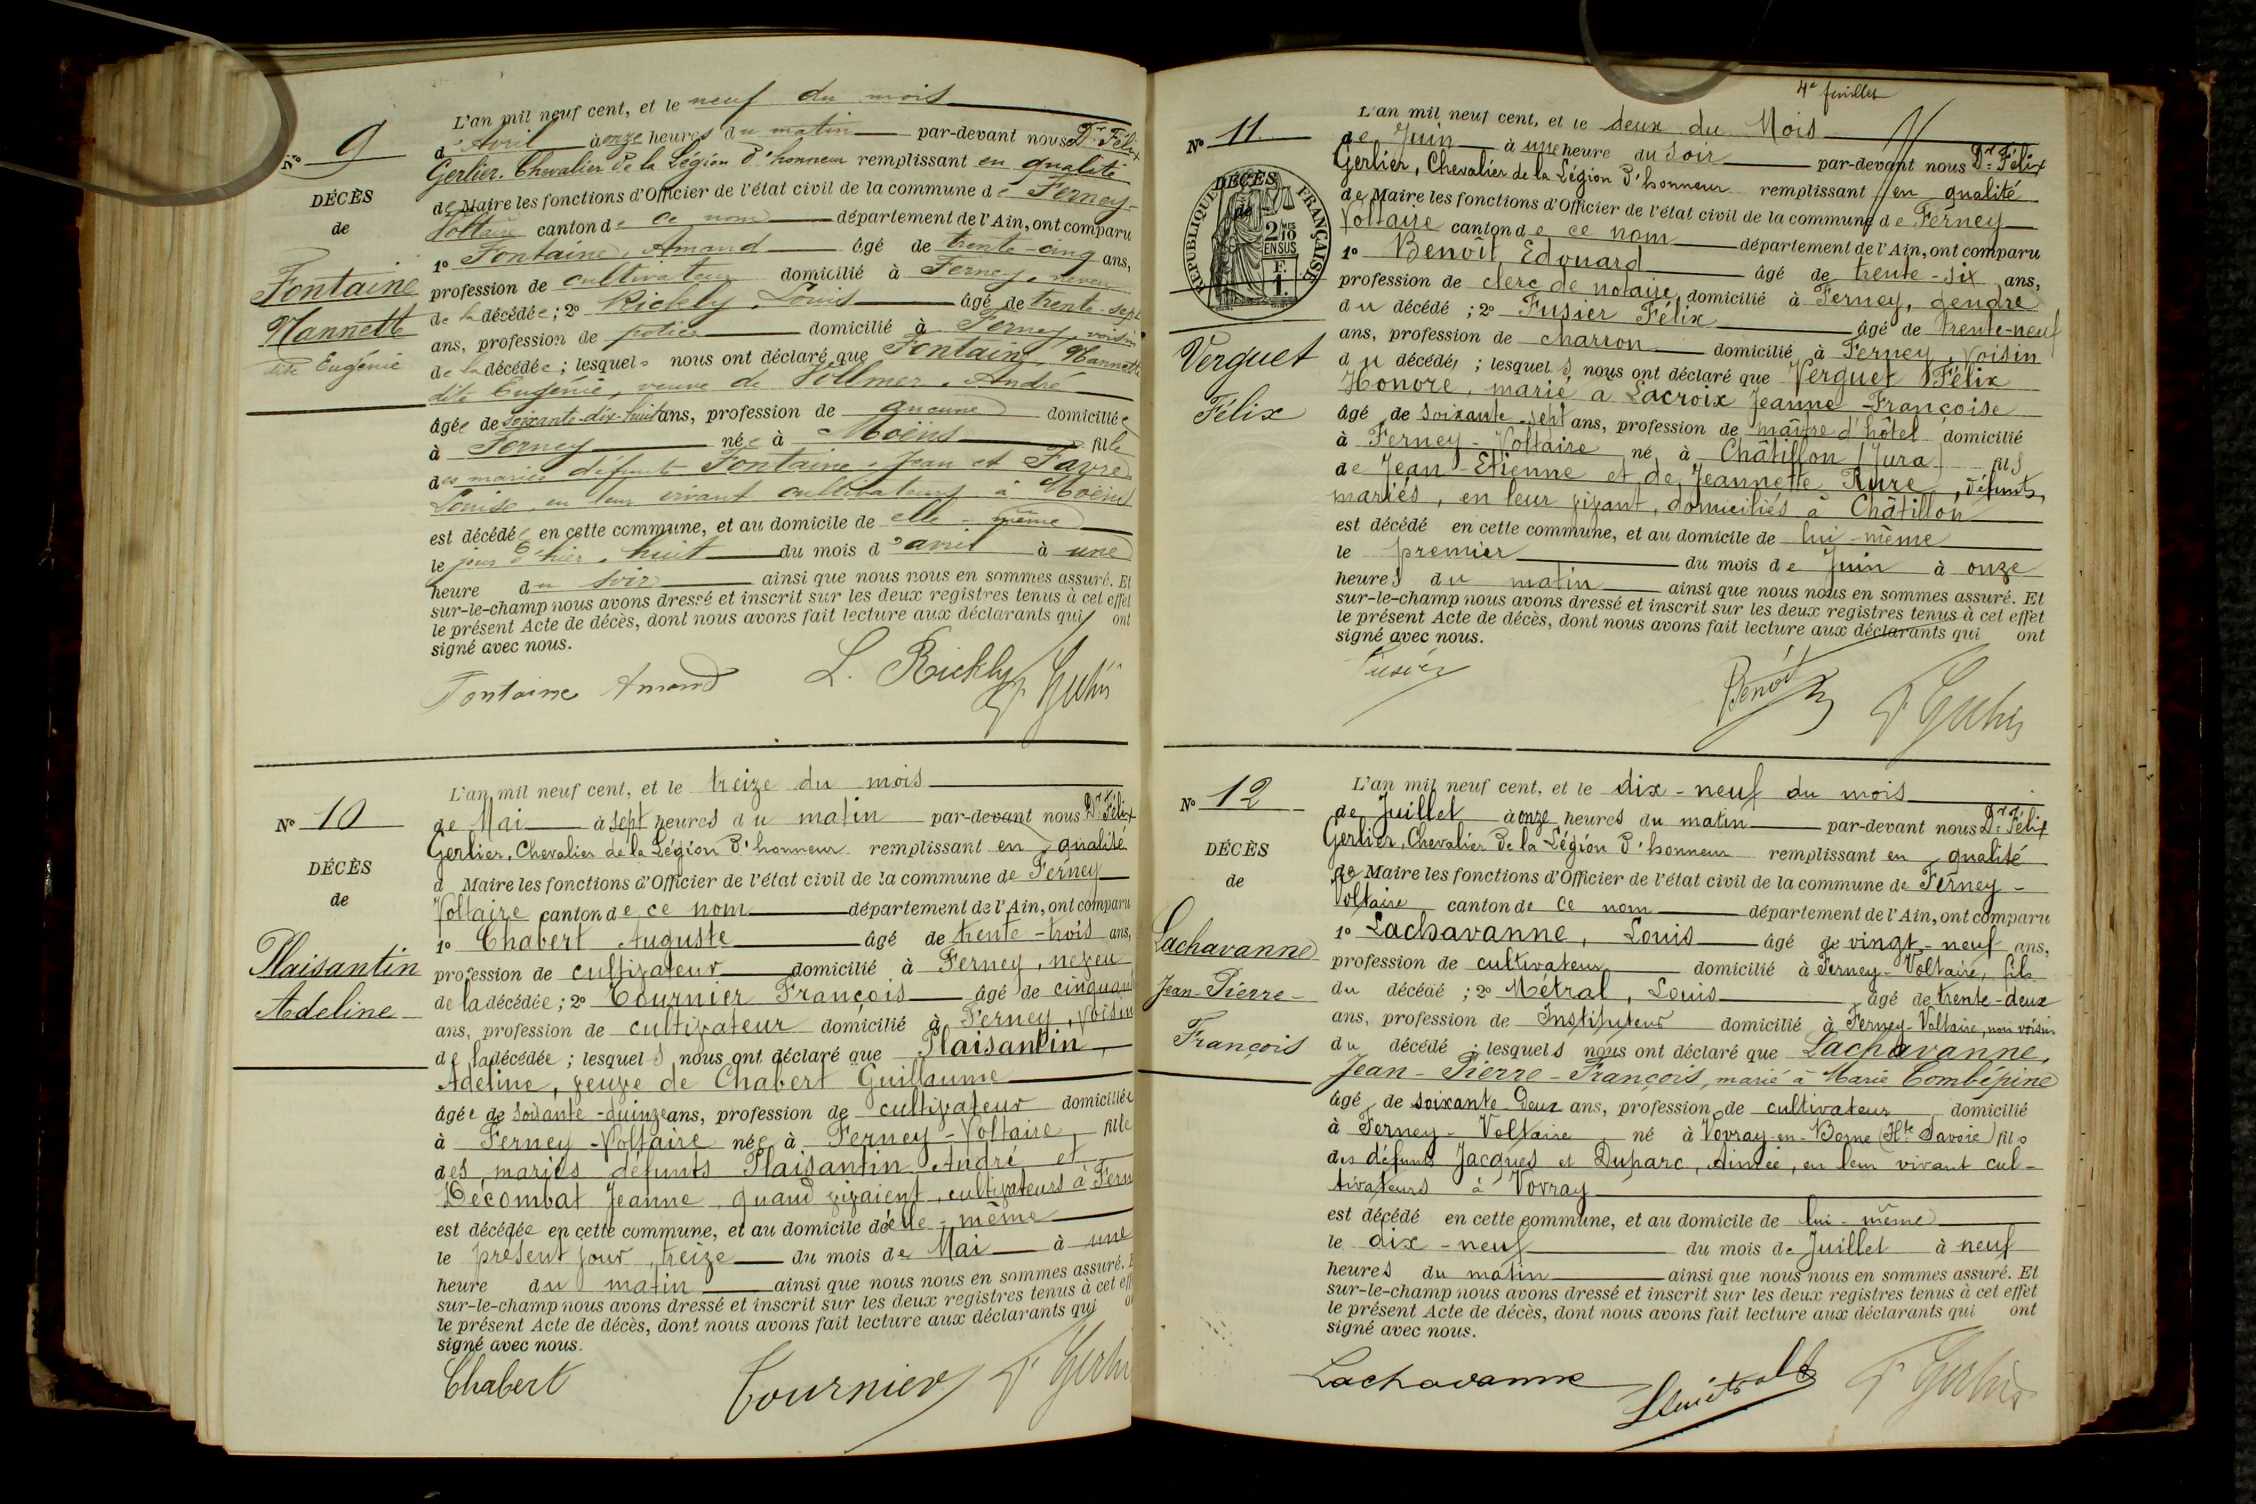 L'an mil neuf cent, et le neuf du mois
d'Avril à onze heures du matin par-devant nous Dr Félix
Gerlier, Chevalier de la Légion d'honneur remplissant en qualité
de Maire les fonctions d'Officier de l'état civil de la commune de Ferney-
Voltaire canton de ce nom département de l'Ain, ont comparu
1º Fontaine, Amand âgé de trente-cinq ans,
profession de cultivateur domicilié à Ferney, neveu
de la décédée; 2º Rickly, Louis âgé de trente-sept
ans, profession de potier domicilié à Ferney, voisin
de la décédée; lesquels nous ont déclaré que Fontaine Nannette
dite Eugénie, veuve de Vollmer, André
âgée de soixante-dix-huit ans, profession de aucune domiciliée
à Ferney née à Moëns fille
des mariés défunts Fontaine, Jean et Favre
Louise, en leur vivant cultivateurs à Moëns
est décédée en cette commune, et au domicile de elle-même
le jour d'hier, huit du mois d'avril à une
heure du soir ainsi que nous nous en sommes assuré. Et
sur-le-champ nous avons dressé et inscrit sur les deux registres tenus à cet effet
le présent Acte de décès, dont nous avons fait lecture aux déclarants qui ont
signé avec nous.
Nº 9
DÉCÈS
de
Fontaine
Nannette
dite Eugénie
Fontaine Amand L. Rickly
L'an mil neuf cent, et le treize du mois
de Mai à sept heures du matin par-devant nous Dr Félix
Gerlier, Chevalier de la Légion d'honneur remplissant en qualité
d Maire les fonctions d'Officier de l'état civil de la commune de Ferney
Voltaire canton de ce nom département de l'Ain, ont comparu
1º Chabert Auguste âgé de trente-trois ans,
profession de cultivateur domicilié à Ferney, neveu
de la décédée; 2º Tournier François âgé de cinquant
ans, profession de cultivateur domicilié à Ferney, voisin
de la décédée; lesquels nous ont déclaré que Plaisantin,
Adeline, veuve de Chabert Guillaume
âgée de soixante-quinze ans, profession de cultivateur domiciliée
à Ferney-Voltaire née à Ferney-Voltaire, fille
des mariés défunts Plaisantin André et
Décombat Jeanne, quand vivaient, cultivateurs à Fern
est décédée en cette commune, et au domicile d'elle-même
le présent jour, treize du mois de Mai à une
heure du matin ainsi que nous nous en sommes assuré. E
sur-le-champ nous avons dressé et inscrit sur les deux registres tenus à cet eff
le présent Acte de décès, dont nous avons fait lecture aux déclarants qui o
signé avec nous.
Nº 10
DÉCÈS
de
Plaisantin
Adeline
Chabert Tournier
4e feuillet
L'an mil neuf cent, et le deux du Mois
de Juin à une heure du soir par-devant nous Dr Félix
Gerlier, Chevalier de la Légion d'honneur remplissant en qualité
de Maire les fonctions d'Officier de l'état civil de la commune de Ferney
Voltaire canton de ce nom département de l'Ain, ont comparu
1º Benoît, Edouard âgé de trente-six ans,
profession de clerc de notaire, domicilié à Ferney, gendre
du décédé; 2º Fusier Félix âgé de trente-neuf
ans, profession de charron domicilié à Ferney, voisin
du décédé; lesquels nous ont déclaré que Verguet Félix
Honoré, marié à Lacroix Jeanne-Françoise
âgé de soixante-sept ans, profession de maître d'hôtel domicilié
à Ferney-Voltaire né à Châtillon (Jura) fils
de Jean-Etienne et de Jeannette Rure, défunts,
mariés, en leur vivant, domiciliés à Châtillon
est décédé en cette commune, et au domicile de lui-même
le premier du mois de Juin à onze
heures du matin ainsi que nous nous en sommes assuré. Et
sur-le-champ nous avons dressé et inscrit sur les deux registres tenus à cet effet
le présent Acte de décès, dont nous avons fait lecture aux déclarants qui ont
signé avec nous.
Nº 11
DÉCÈS
de
RÉPUBLIQUE FRANÇAISE
2 MES 10 EN SUS
F. 1.
Verguet
Félix
Fusier Benoît
L'an mil neuf cent, et le dix-neuf du mois
de Juillet à onze heures du matin par-devant nous Dr Félix
Gerlier, Chevalier de la Légion d'honneur remplissant en qualité
de Maire les fonctions d'Officier de l'état civil de la commune de Ferney-
Voltaire canton de ce nom département de l'Ain, ont comparu
1º Lachavanne, Louis âgé de vingt-neuf ans,
profession de cultivateur domicilié à Ferney-Voltaire, fils
du décédé; 2º Métral, Louis âgé de trente-deux
ans, profession de Instituteur domicilié à Ferney-Voltaire, non voisin
du décédé; lesquels nous ont déclaré que Lachavanne,
Jean-Pierre-François, marié à Marie Combépine
âgé de soixante deux ans, profession de cultivateur domicilié
à Ferney-Voltaire né à Vovray-en-Borne (Hte Savoie) fils
des défunts Jacques et Duparc, Aimée, en leur vivant cul-
tivateurs à Vovray
est décédé en cette commune, et au domicile de lui-même
le dix-neuf du mois de Juillet à neuf
heures du matin ainsi que nous nous en sommes assuré. Et
sur-le-champ nous avons dressé et inscrit sur les deux registres tenus à cet effet
le présent Acte de décès, dont nous avons fait lecture aux déclarants qui ont
signé avec nous.
Nº 12
DÉCÈS
de
Lachavanne
Jean-Pierre-
François
Lachavanne